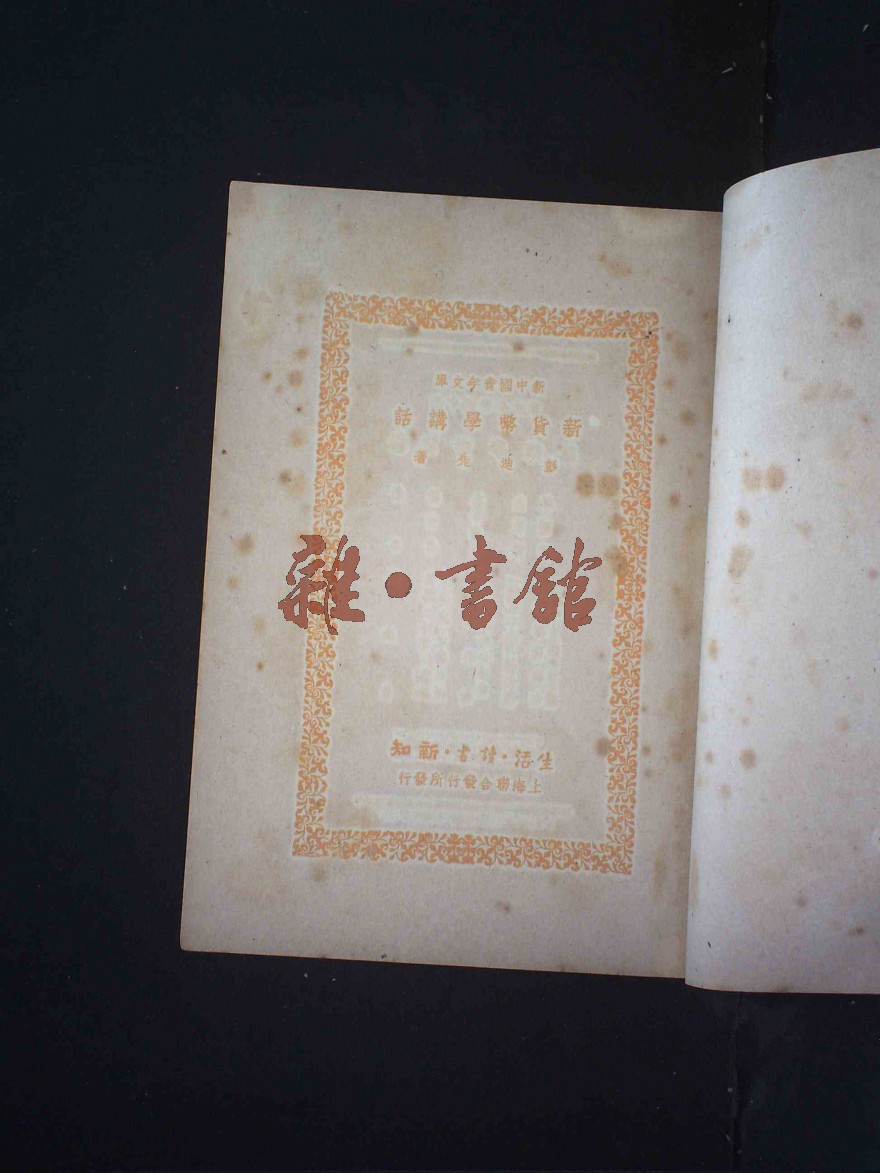 新中國青年文庫
新貨幣學講話
彭迪先著
雜・書館
生活・讀書・新知
上海聯合發行所發行